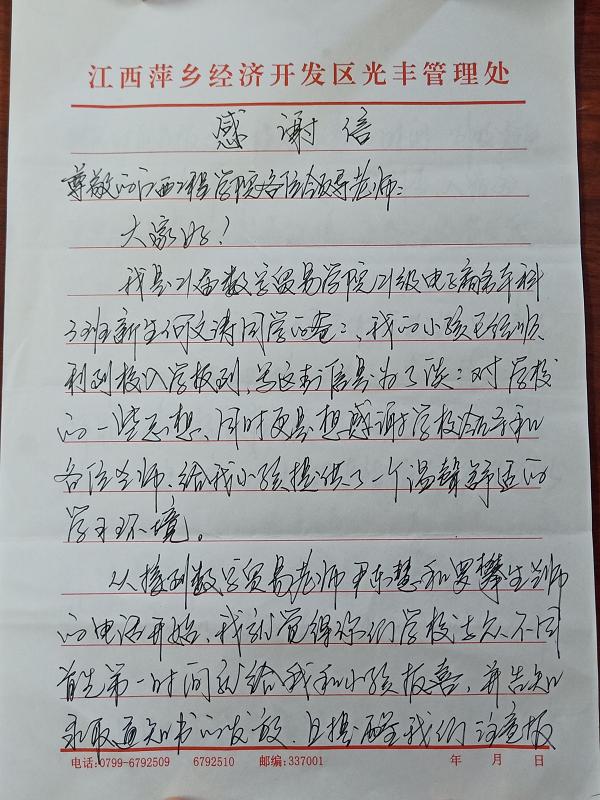 江西萍乡经济开发区光丰管理处
感谢信
尊敬的江西工程学院各位领导老师：
大家好！
我是21届数字贸易学院21级电子商务专科
3班新生何文涛同学的爸爸，我的小孩已经顺
利到校入学报到，写这封信是为了谈谈对学校
的一些思想，同时更是想感谢学校领导和
各位老师，给我小孩提供了一个温馨舒适的
学习环境。
从接到数字贸易老师尹东慧和罗攀生老师
的电话开始，我就觉得你们学校与众不同
首先第一时间就给我和小孩报喜，并告知
录取通知书的发放，且提醒我们注意报
电话:0799-6792509 6792510 邮编:337001 年 月 日